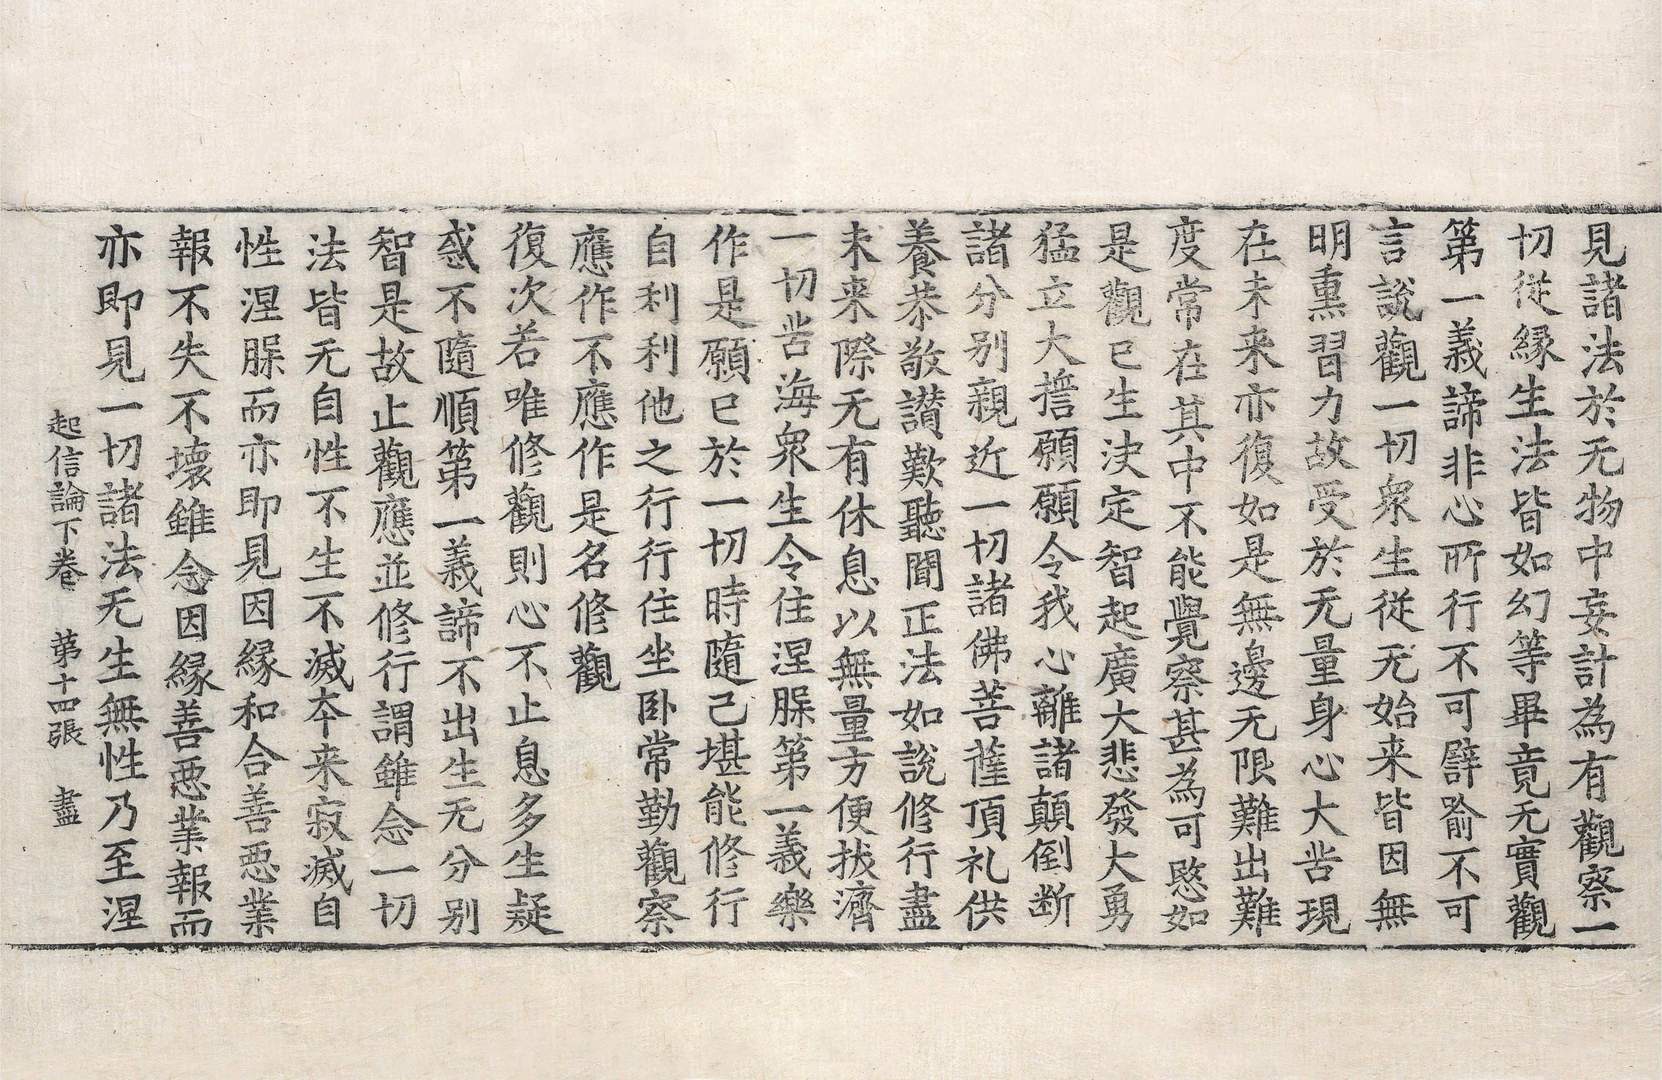 見諸法於无物中妄計為有觀察一
切従縁生法皆如幻等畢竟无實觀
第一義諦非心所行不可譬喻不可
言說觀一切衆生従无始来皆因無
明熏習力故受於无量身心大苦現
在未来亦復如是無邊无限難出難
度常在其中不能覺察甚為可愍如
是觀已生決定智起廣大悲發大勇
猛立大誓願願令我心離諸顛倒断
諸分別親近一切諸佛菩薩頂礼供
養恭敬讃歎聽聞正法如說修行盡
未来際无有休息以無量方便拔濟
一切苦海衆生令住涅槃第一義樂
作是願已於一切時隨己堪能修行
自利利他之行行住坐卧常勤觀察
應作不應作是名修觀
復次若唯修觀則心不止息多生疑
惑不隨順第一義諦不出生无分別
智是故止觀應並修行謂雖念一切
法皆无自性不生不滅夲来寂滅自
性涅槃而亦即見因縁和合善惡業
報不失不壞雖念因縁善惡業報而
亦即見一切諸法无生無性乃至涅
起信論下卷 第十四張 盡